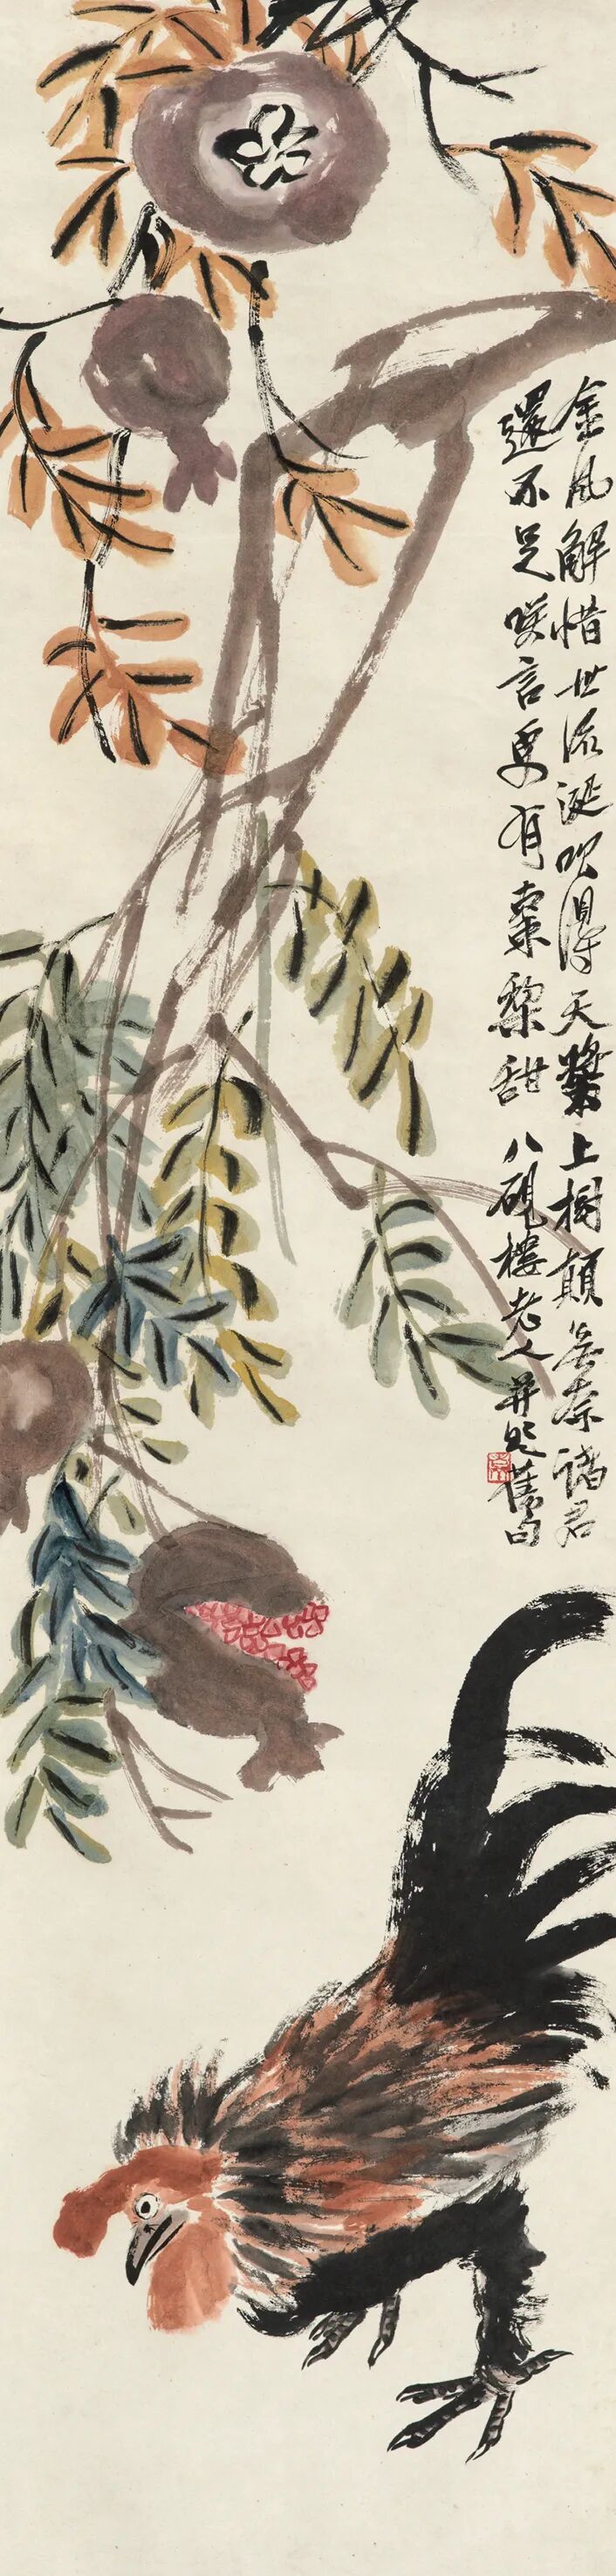 金風解惜世流涎吹得天漿上樹顛無奈諸君
還不足笑言更有棗黎甜 八硯樓老人并題舊句